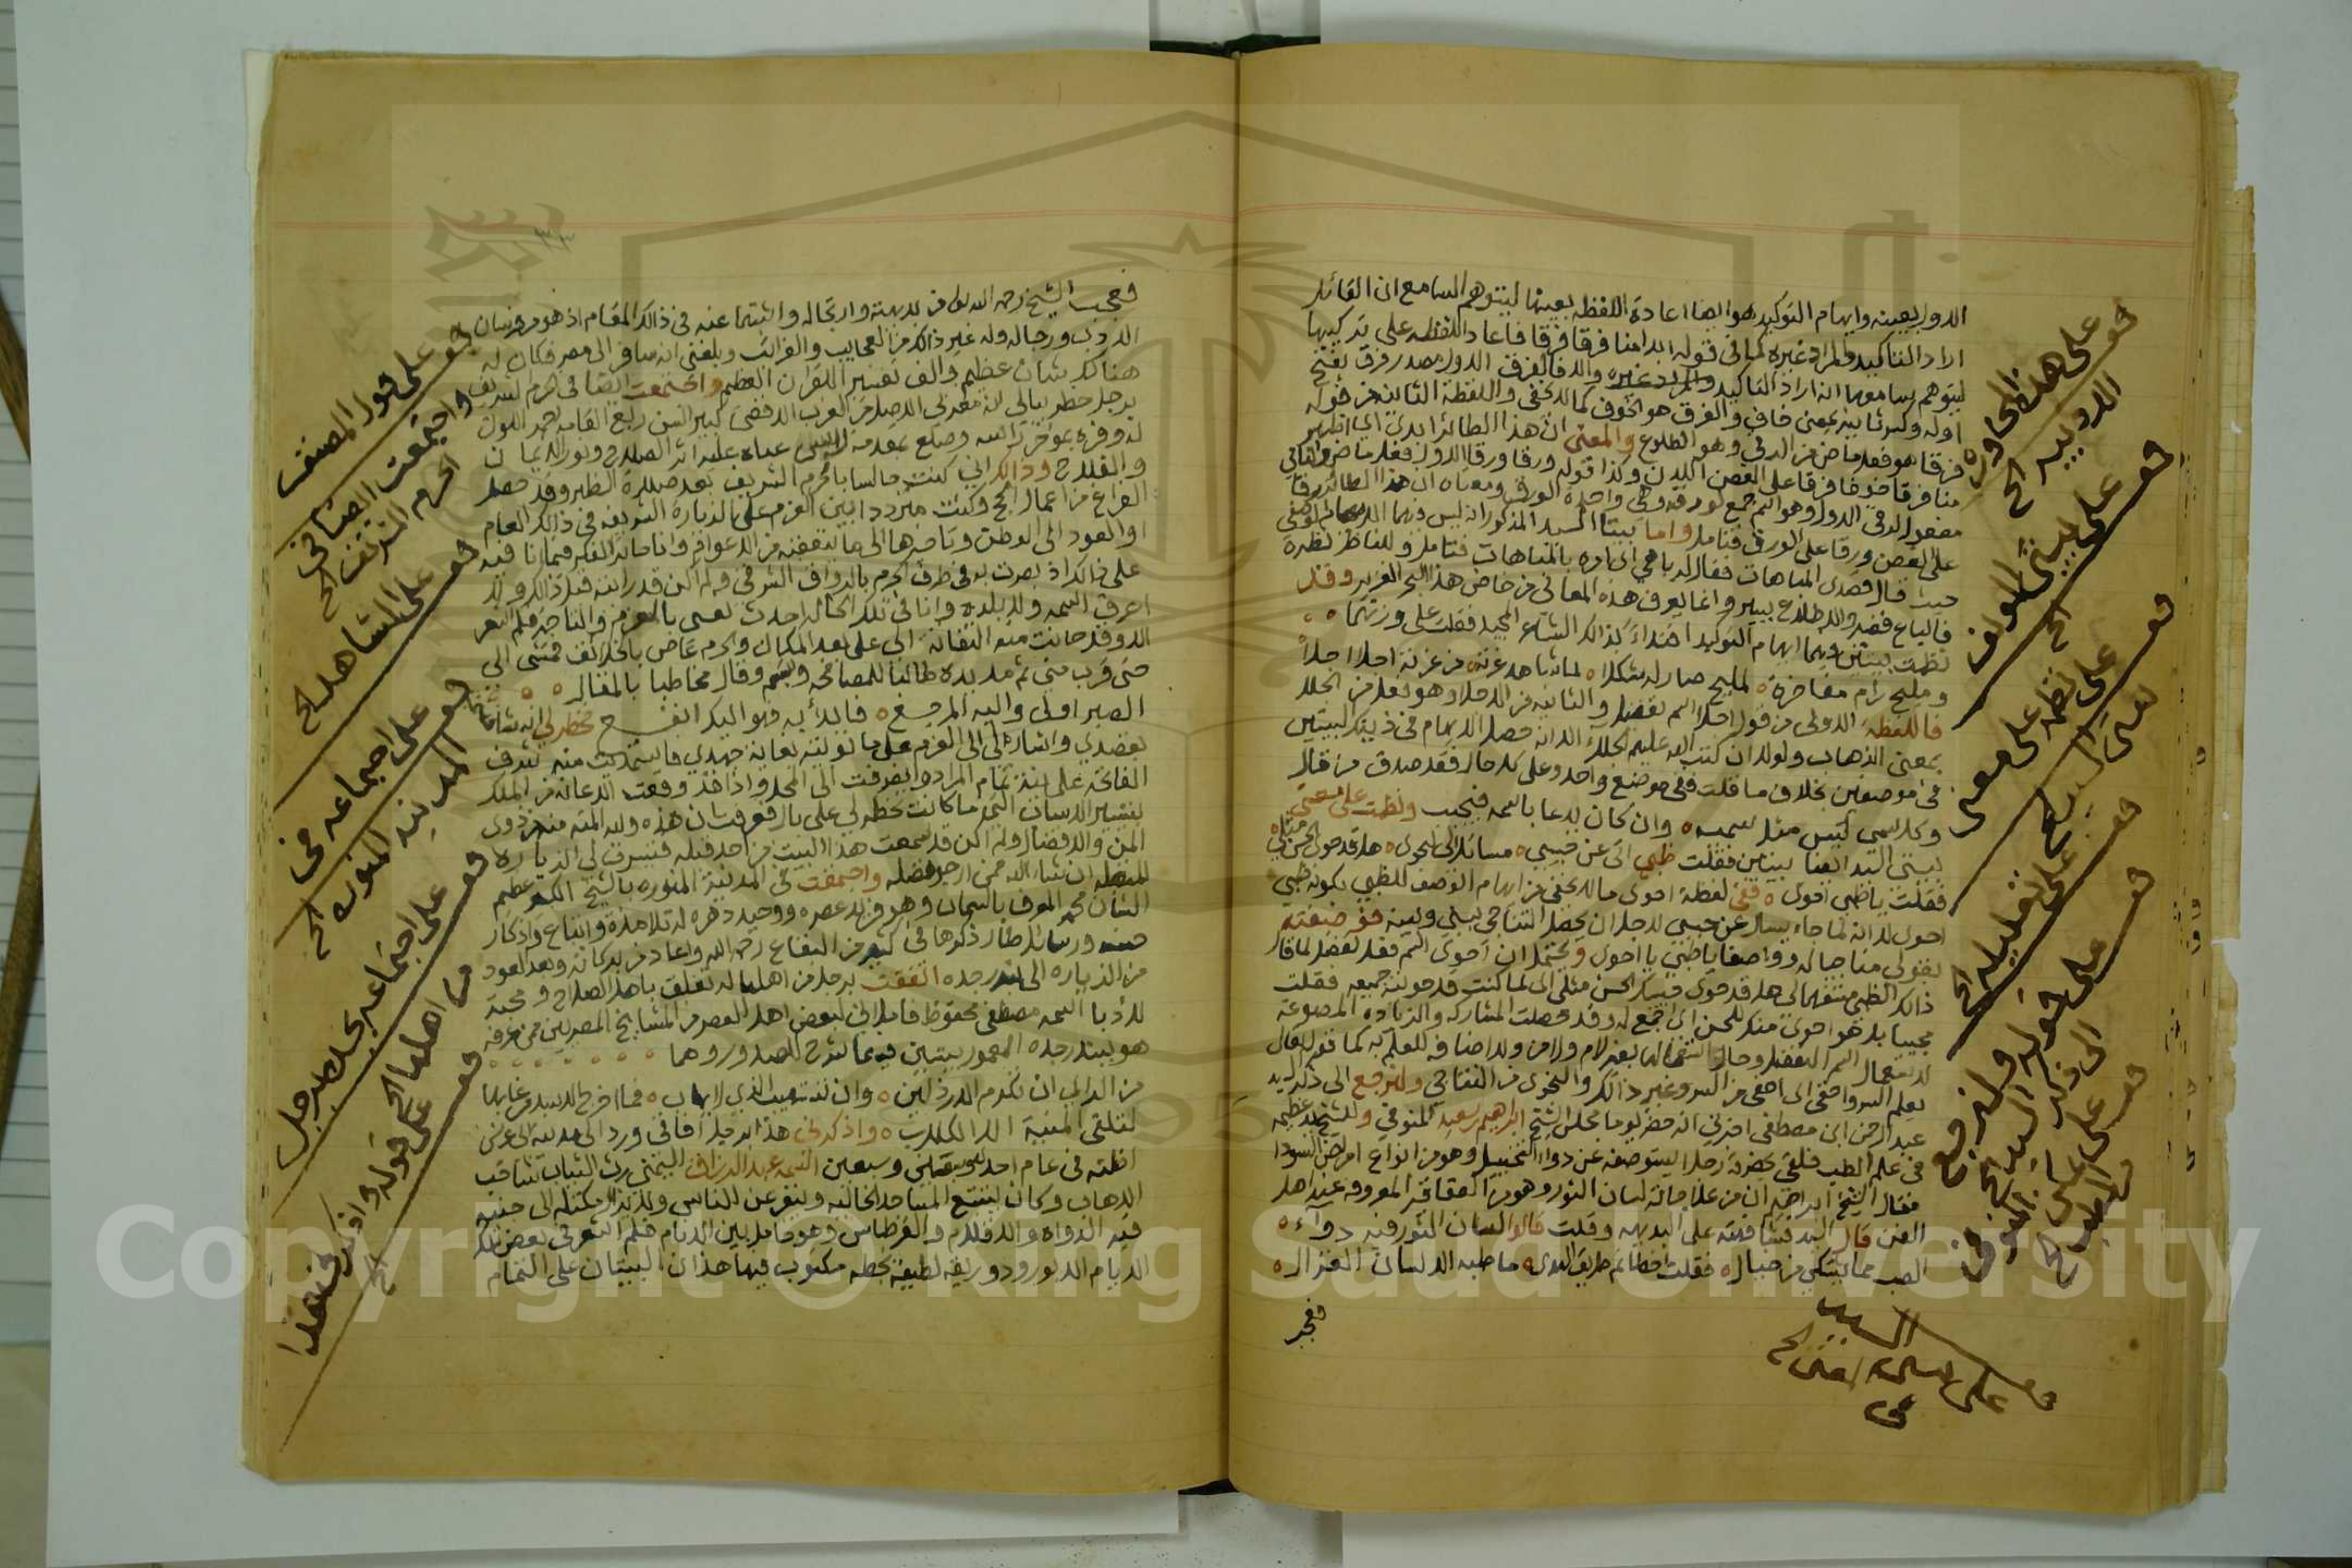 الاول بعينه وايهام التوكيد هو ايضا اعادة اللفظه بعينها ليتوهم السامع ان القائل
اراد التاكيد والمراد غيره كما في قوله ابدا منا فرقا فرقا فاعاد اللفظه على تركيبها
ليتوهم سامعها انه اراد التاكيد والمراد غيره والفرق الاول مصدر فرق بفتح
اوله وكسر ثانيه بمعنى خاف والفرق هو الخوف كما لا يخفى واللفظة الثانية من قوله
فرقا هو فعل ماض من الرقي وهو الطلوع والمعنى ان هذا الطائر ابدى اي اظهر
منا فرقا خوفا فرقا على الغصن اللدن وكذا قوله ورقا ورقا الاول فعل ماض والثاني
مفعول الرقي الاول وهو اسم جمع لورقه وهي واحدة الورق ومعناه ان هذا الطائر رقا
على الغصن ورقا على الورق فتامل واما بيتا السيد المذكور انه ليس فيهما
حيث قال قصدي المباهات فقال له باهي اي اده بالمباهات فتامل وللناظر نظره
فالباع قصير والاطلاع يسير وانما يعرف هذه المعاني من خاض هذا البحر الغزير وقد
نظمت بيتين فيهما ايهام التوكيد اهتداء بذالك الشاعر المجيد فقلت على وزنهما
ومليح رام مفاخرة لمليح صار له شكلا لما شاهد غرته من غزته احلا احلا
فاللفظة الاولى من قول احلا اسم تفضيل والثانيه من الاجلا وهو فعل من الجلا
بمعنى الذهاب ولولا ان كتب الله عليهم الجلاء الا انه حصل الايهام في ذينك البيتين
في موضعين بخلاف ما قلت ففي موضع واحد وعلى كل حال فقد صدق من قال
وكل سمي ليس مثل سميه وان كان يدعا باسمه فيجيب ونظمت على معنى
بيتي السيد ايضا بيتين فقلت ظبي اتى عن حبيبي مسائلا لي احوى هل قد حوى الحسن مثلي
فقلت يا ظبي احوى ففي لفظة احوى ما لا يخفى من ايهام الوصف للظبي بكونه ظبي
احوى لانه لما جاء يسال عن حبيبي لاجل ان يحصل التناجي بيني وبينه
بقولي مناجيا له وواصفا يا ظبي يا احوى ويحتمل ان احوى اسم فعل تفضيل لما قال
ذالك الظبي مستفهما لي هل قد حوى فيك الحسن مثلي اي لما كنت قد حويته جميعه فقلت
مجيبا بل هو احوى منك للحسن اي اجمع له وقد حصلت المشاركه والزياده المصوغة
عبد الرحمن ابن مصطفى اخبرني انه حضر يوما مجلس الشيخ ابراهيم سعيد المنوفي وللشيخ يد عظيمه
في علم الطب فلقى بحضرته رجلا يستوصفه عن دواء التخييل وهو من انواع امراض السودا
فقال الشيخ ابراهيم ان من علاجاته لسان الثور وهو من العقاقير المعروفه عند اهل
الفن قال السيد فشافهته على البديهه وقلت قالوا لسان الثور فيه دواء
الصب مما يشتكي من خبال فقلت اخطاتم طريق الهدى ما طبه الا لسان الغزال
فعجب
قف على هذه المحاوره
الادبيه الخ
قف على بيتي المولف
الخ
قف على نظمه على معنى
بيتي السيد الخ
قف على تمثيله الخ
قف على قوله ولنرجع
الى ذكر السيد الخ
قف على مجلس المنوفي
الطبيب الخ
قف على بيتي السيد
فعجب الشيخ رحمه الله تعالى من بديهته وارتجاله واثبتها عنه في ذالك المقام اذ هو من فرسان
الادب ورجاله وله غير ذالك من العجايب والغرائب وبلغني انه سافر الى مصر فكان له
هنالك شان عظيم والف تفسير القران العظيم واجتمعت ايضا في الحرم الشريف
برجل خطر ببالي انه مغربي الاصل من الغرب الاقصى كبير السن ربع القامه اسمر اللون
له وفرة بمواخر راسه وصلع بمقدمه لابس عباه عليه اثر الصلاح ونور الايمان
والفلاح وذالك اني كنت جالسا بالحرم الشريف بعد صلاة الظهر وقد حصل
الفراغ من اعمال الحج وكنت مترددا بين العزم على الزيارة الشريفه في ذالك العام
او العود الى الوطن وتاخيرها الى ما نتفقه من الاعوام وانا حائر الفكر فبينما انا
على ذالك اذ بصرت به في طرف الحرم بالرواق الشرقي ولم اكن قد رايته قبل ذالك ولا
اعرف اسمه ولا بلده وانا في تلك الحالة احدث نفسي بالعزم والتاخير فلم اشعر
الا وقد حانت منه التفاتة الي على بعد المكان والحرم غاص بالخلائق فمشى الي
حتى قرب مني ثم مد يده طالبا للمصافحه وتبسم وقال مخاطبا بالمقال
الصبر اولى واليه المرجع فالجأ به فهو اليك انفع فخطر لي انه شاعر
بقصدي واشار لي الى العزم على ما نويته بغاية جهدي فاستمديت منه شرف
الفاتحه على نية تمام المراده انصرفت الى المحل واذا قد وقعت الاعانه من الملك
بتيسير الاسباب التي ما كانت تخطر لي على بال فعرفت شان هذه ولله المنه من ذوى
المن والافضال ولم اكن قد سمعت هذا البيت من احد قبله فتيسرت لي الزياره
المتقبله ان شاء الله ممن ارجو فضله واجتمعت في المدنية المنوره بالشيخ الكبير عظيم
الشان محمد المعروف بالسمان وهو فريد عصره ووحيد دهره له تلامذة واتباع واذكار
حسنه ورسائل طار ذكرها في كثير من البقاع رحمه الله واعاد من بركاته وبعد العود
من الزياره الى بندر جده اتفقت برجل من اهلها له تعلق باهل الصلاح ومحبة
للادبا اسمه مصطفى محفوظ فاملاني لبعض اهل العصر من المشايخ المصريين ممن عرفه
هو ببندر جده المعمور بيتين فيهما شرح للصدور وهما
من الراي ان تكرم الارذلين وان تتهيب الذي لايهاب فما اخرج الاسد من غابها
لتلقى المنية الا الكلاب واذكرني هذا برجل افاقي ورد الى مدينة الى عرش
اظنه في عام احد وسبعين اسمه عبد الرزاق اليمني رث الثياب ثاقب
الذهاب وكان يتتبع المساجد الخاليه وينفر عن الناس ولا يزال مكتله الى جنبه
فيه الدواة والاقلام والقرطاس وهو خامل بين الانام فلم اشعر في بعض تلك
الايام الا وورد وريقه لطيفة بخطه مكتوب فيها هذان البيتان على التمام
قف على قول المصنف
واجتمعت ايضا في
الحرم الشريف الخ
قف على المشاهد الخ
قف على اجتماعه في
المدينه المنوره الخ
قف على اجتماعه بخط رجل
من اهلها الخ
قف على قوله واذكرني هذا
الخ
Copyright © King Saud University